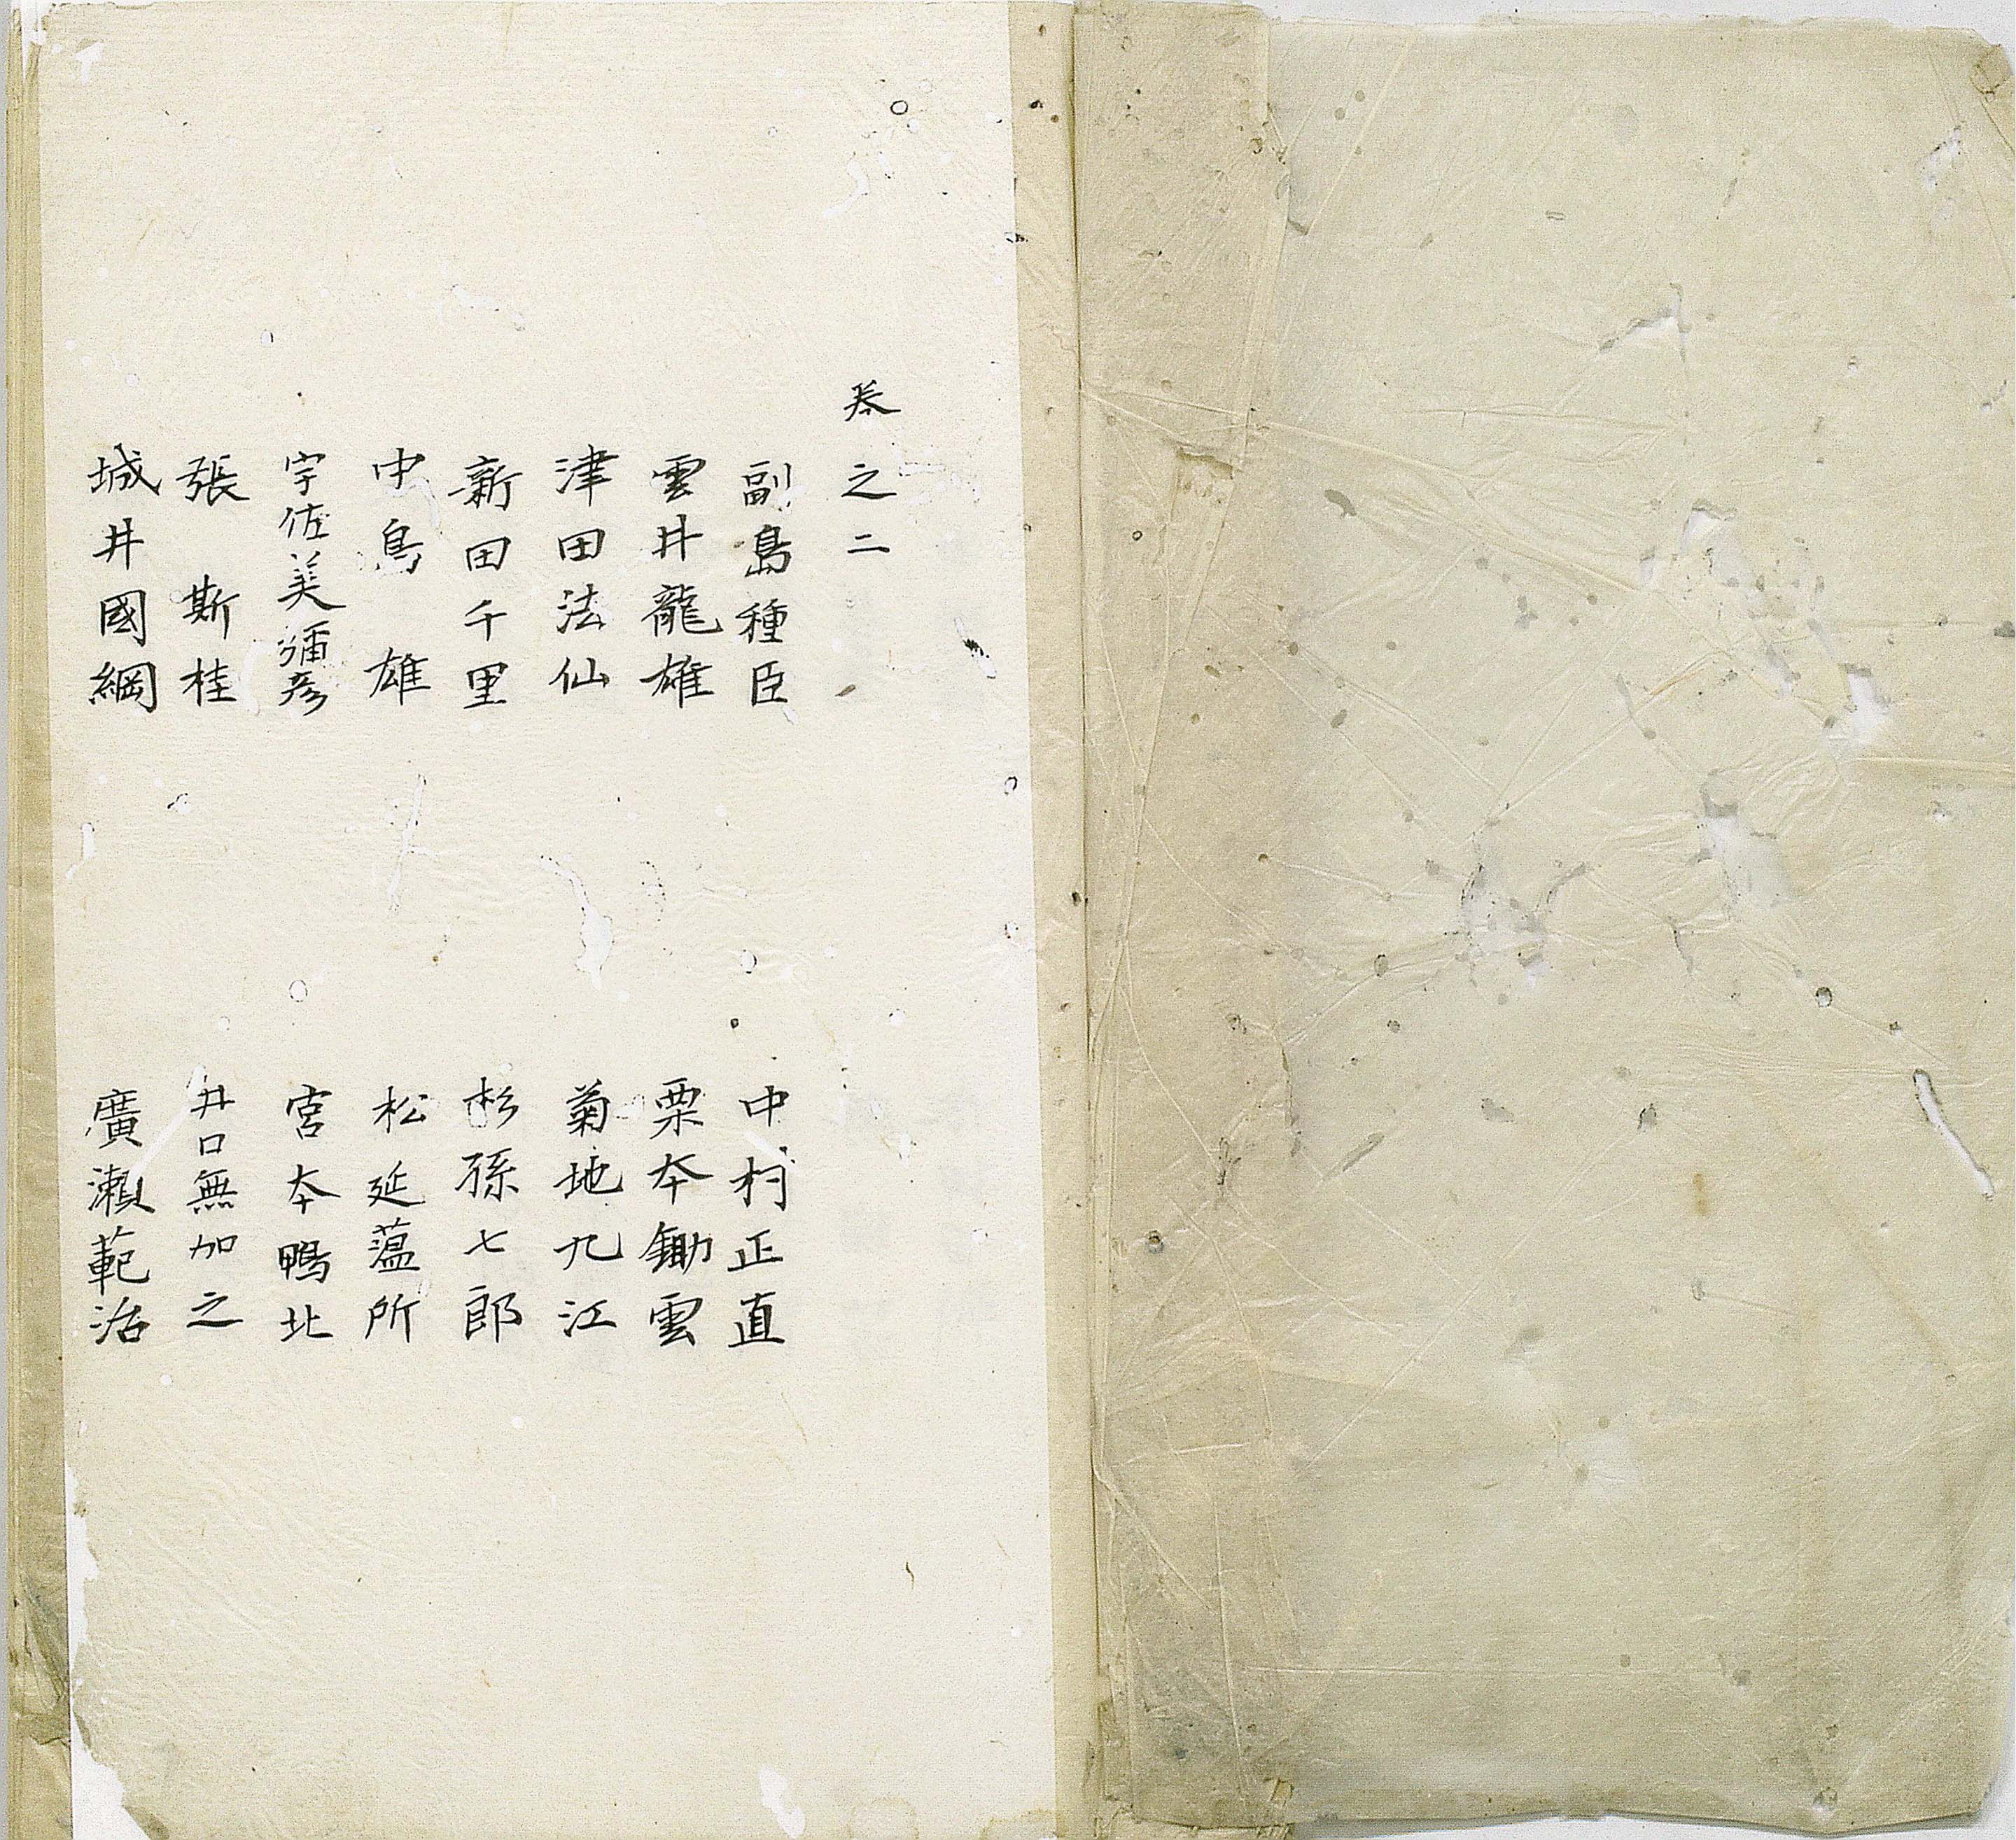 卷之二
副島種臣
中村正直
雲井龍雄
栗本鋤雲
津田法仙
菊地九江
新田千里
杉孫七郎
中島雄
松延蕰所
宇佐美彌彦
宮本鴨北
張斯桂
井口無加之
城井國綱
廣瀬範治